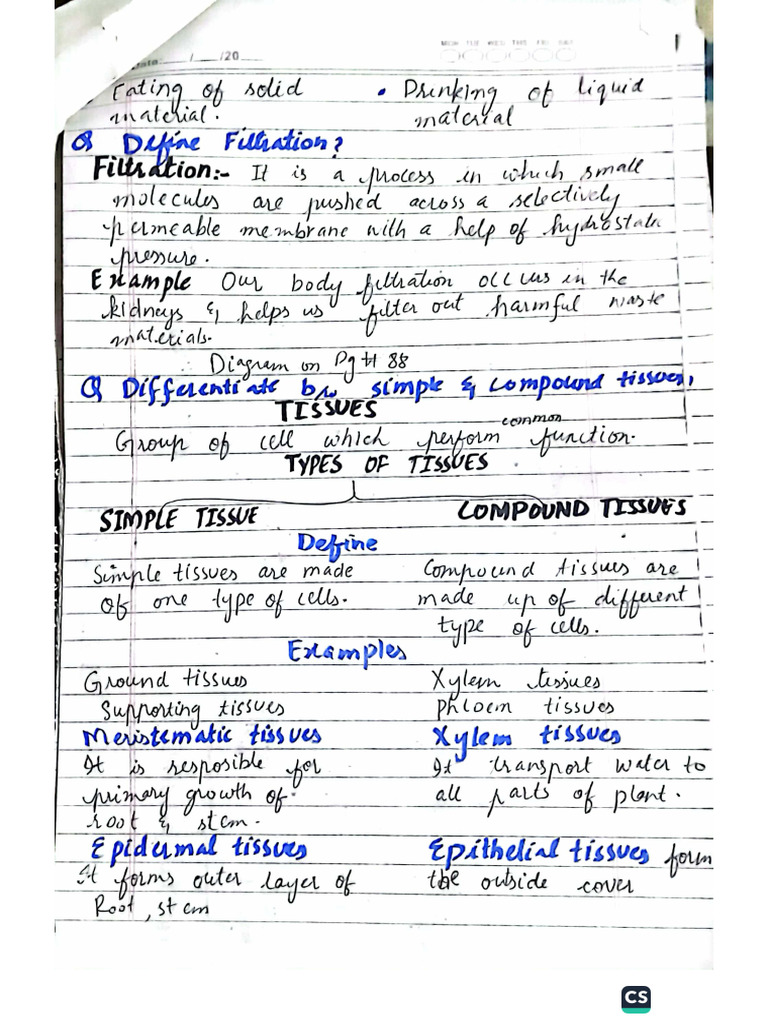 Date___/___/20___ MON TUE WED THU FRI SAT
Eating of solid • Drinking of liquid
material. material
Q Define Filtration?
Filtration:- It is a process in which small
molecules are pushed across a selectively
permeable membrane with a help of hydrostatic
pressure.
Example Our body filtration occurs in the
kidneys & helps us filter out harmful waste
materials.
Diagram on Pg # 88
Q Differentiate b/w simple & compound tissues,
TISSUES
Group of cell which perform common function.
TYPES OF TISSUES
SIMPLE TISSUE COMPOUND TISSUES
Define
Simple tissues are made Compound tissues are
of one type of cells. made up of different
type of cells.
Examples
Ground tissues Xylem tissues
Supporting tissues phloem tissues
Meristematic tissues Xylem tissues
It is resposible for It transport water to
primary growth of all parts of plant.
root & stem.
Epidermal tissues Epithelial tissues form
It forms outer layer of the outside cover
Root, stem
CS